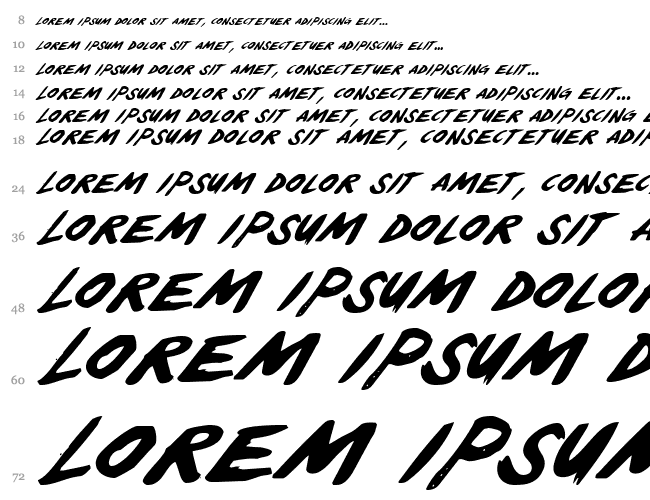 8 LOREM IPSUM DOLOR SIT AMET, CONSECTETUER ADIPISCING ELIT...
10 LOREM IPSUM DOLOR SIT AMET, CONSECTETUER ADIPISCING ELIT...
12 LOREM IPSUM DOLOR SIT AMET, CONSECTETUER ADIPISCING ELIT...
14 LOREM IPSUM DOLOR SIT AMET, CONSECTETUER ADIPISCING ELIT...
16 LOREM IPSUM DOLOR SIT AMET, CONSECTETUER ADIPISCING E
18 LOREM IPSUM DOLOR SIT AMET, CONSECTETUER ADIP
24 LOREM IPSUM DOLOR SIT AMET, CONSEC
36 LOREM IPSUM DOLOR SIT A
48 LOREM IPSUM DOLO
60 LOREM IPSUM D
72 LOREM IPSUM